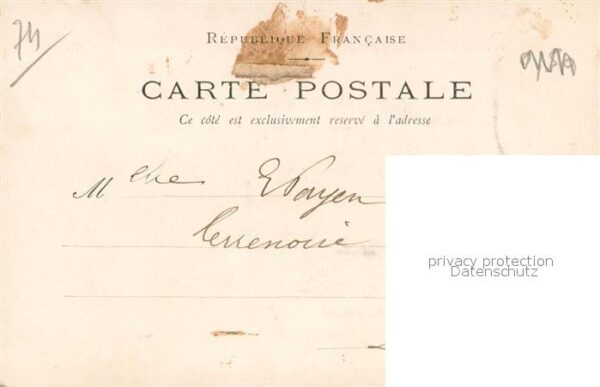 74
RÉPUBLIQUE FRANÇAISE
CARTE POSTALE
Ce côté est exclusivement reservé à l'adresse
M elle E Payen
Terrenoire
privacy protection
Datenschutz